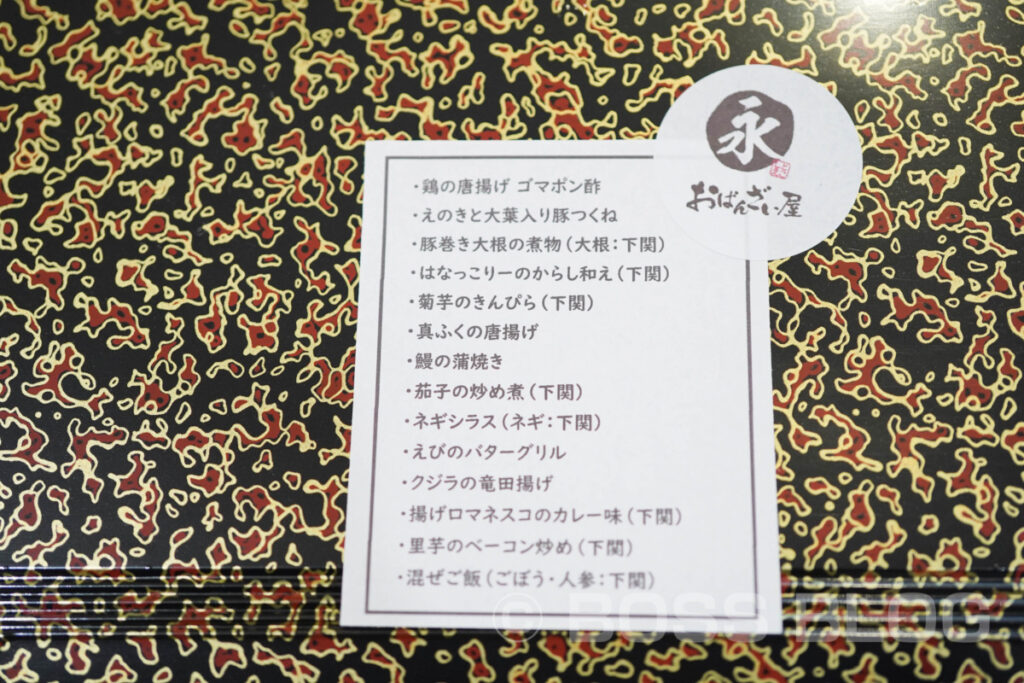 永
おばんざい屋
・鶏の唐揚げ ゴマポン酢
・えのきと大葉入り豚つくね
・豚巻き大根の煮物(大根:下関)
・はなっこりーのからし和え(下関)
・菊芋のきんぴら(下関)
・真ふくの唐揚げ
・鰻の蒲焼き
・茄子の炒め煮(下関)
・ネギシラス(ネギ:下関)
・えびのバターグリル
・クジラの竜田揚げ
・揚げロマネスコのカレー味(下関)
・里芋のベーコン炒め(下関)
・混ぜご飯(ごぼう・人参:下関)
© BOSS BLOG